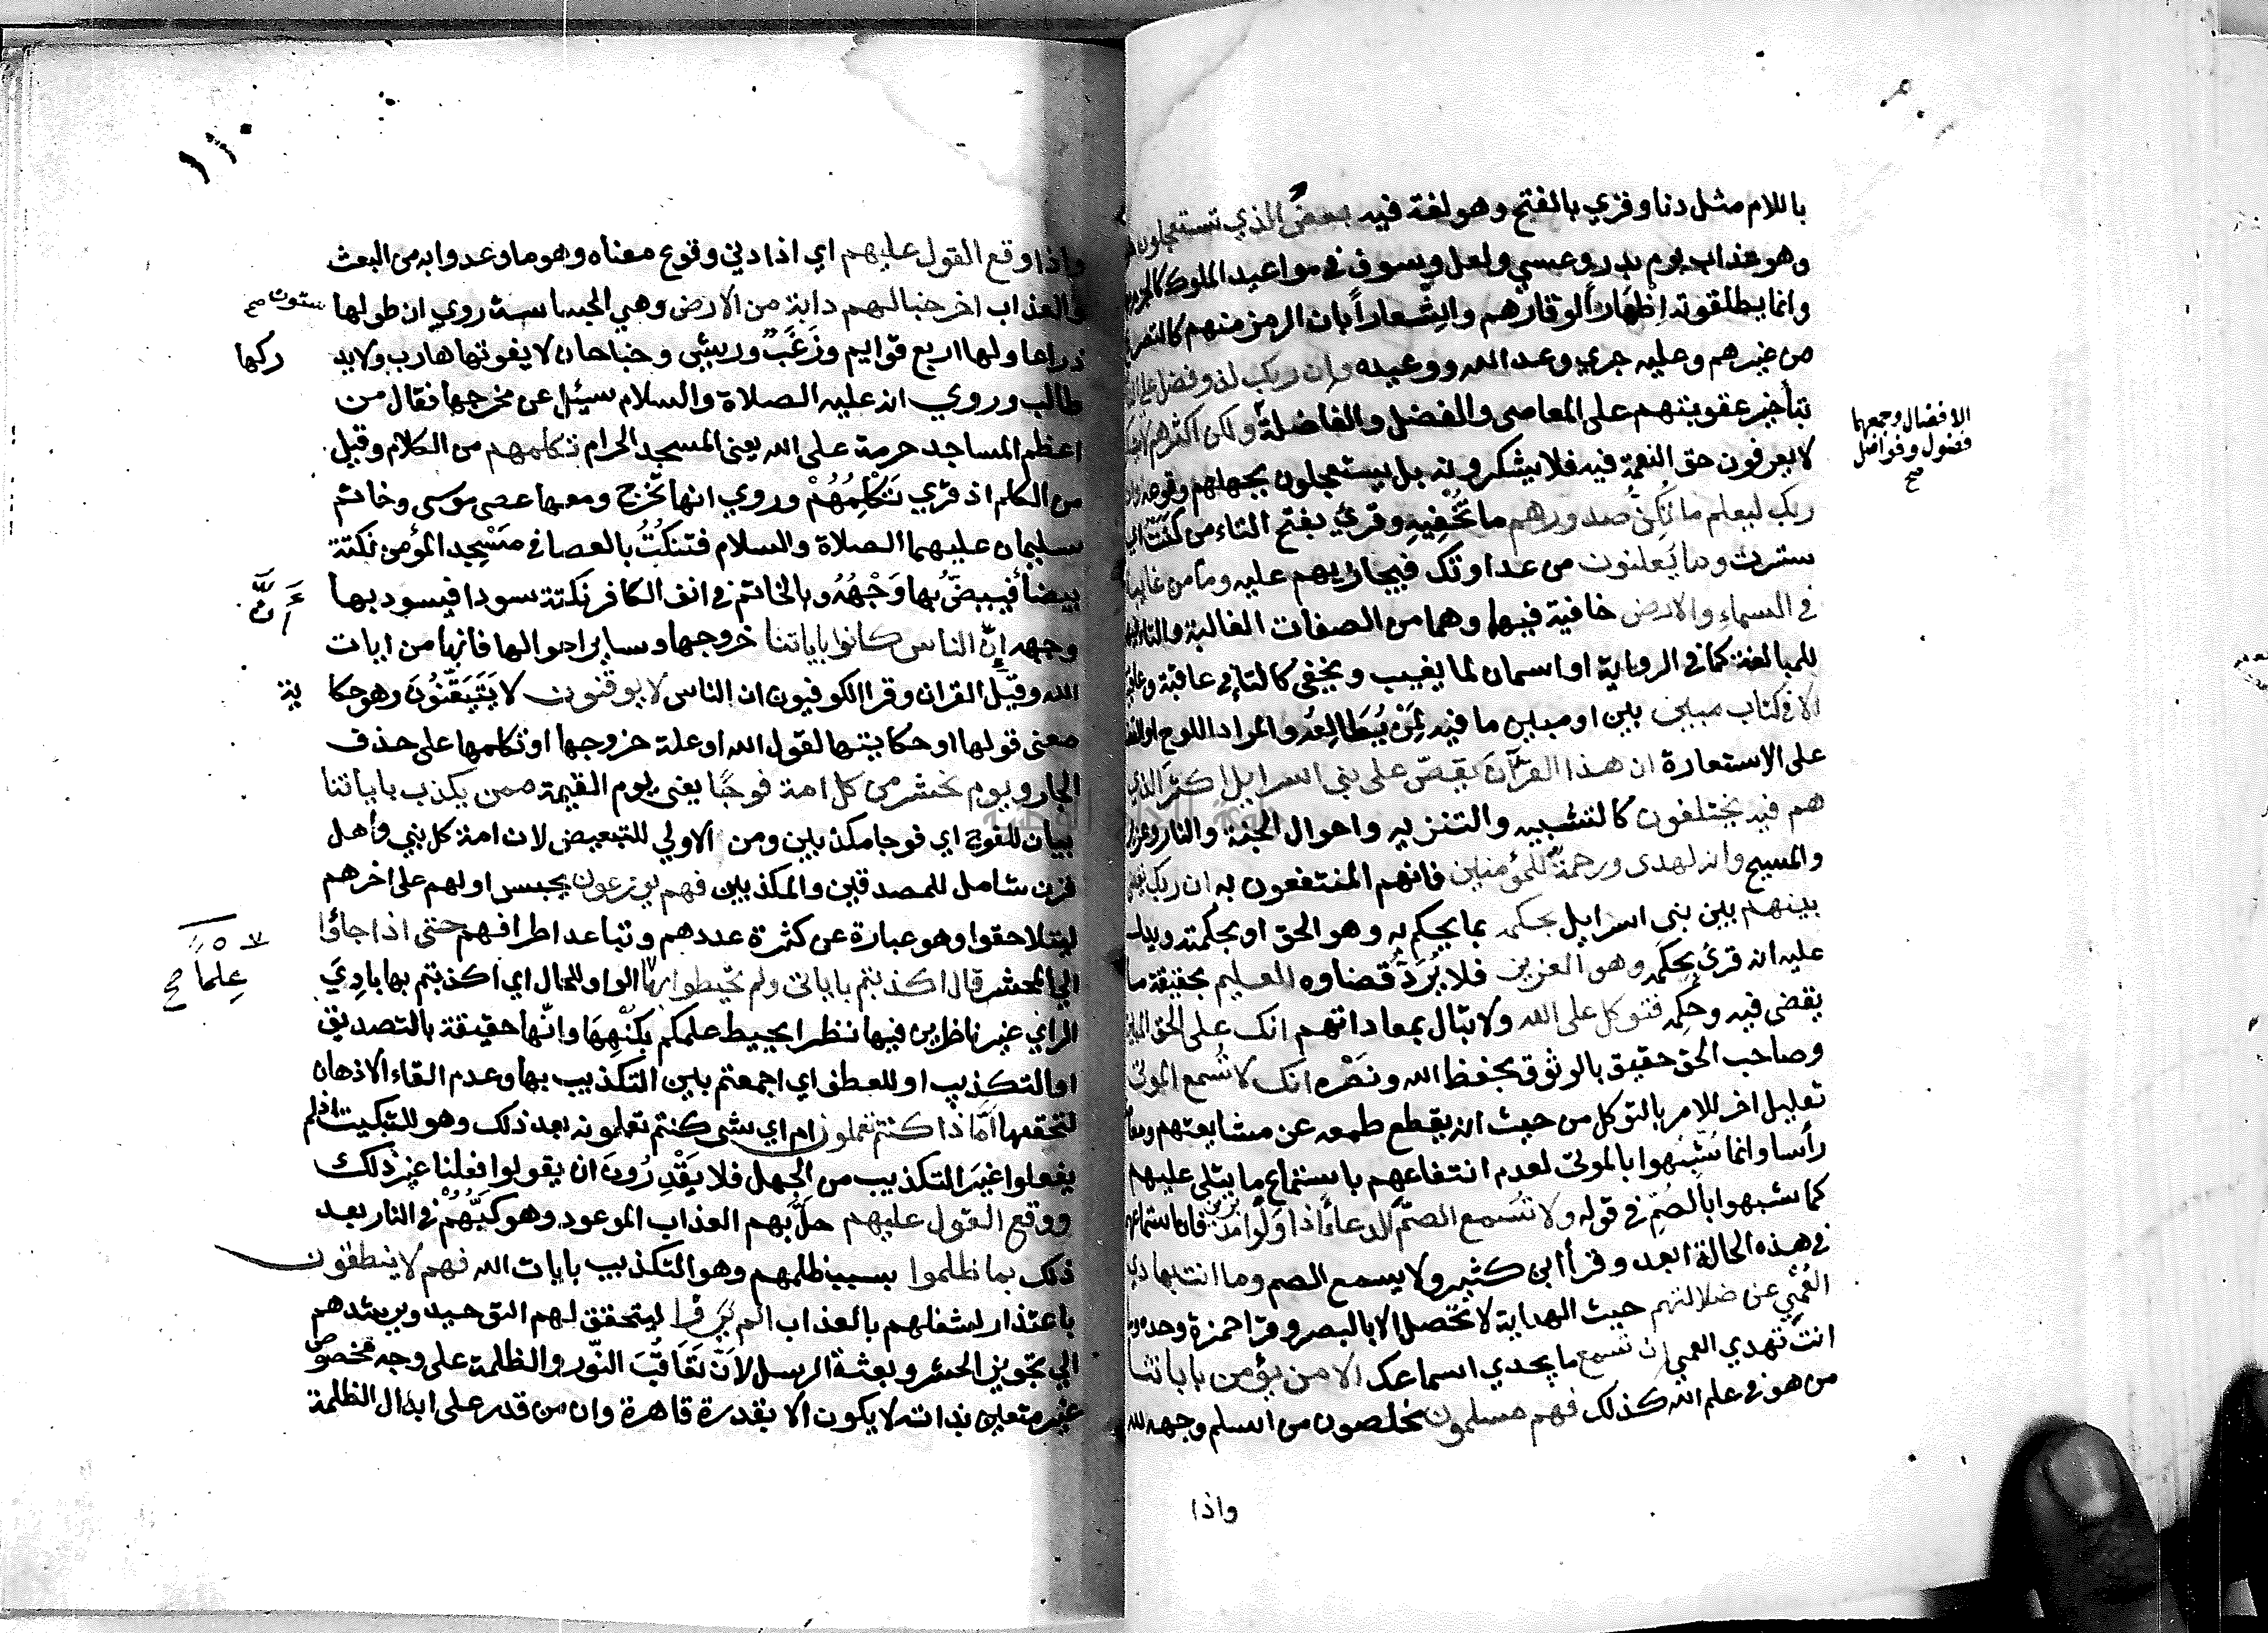 باللام مثل دنا وقري بالفتح وهو لغة فيه بعض الذي تستعجلون
وهو عذاب يوم بدر وعسي ولعل وسوف في مواعيد الملوك كالجزم
وانما يطلقونه اِظْهَاراً لوقارهم واِشْعاراً بان الرمز منهم كالتصريح
من غيرهم وعليه جري وعد الله ووعيده وان ربك لذو فضل علي
بتأخير عقوبتهم على المعاصي والفضل والفاضلة ولكن اكثرهم
الافضال وجمعها
فضول وفواضل
صح
لا يعرفون حق النعمة فيه فلا يشكرونه بل يستعجلون بجهلهم وقوعه
ربك ليعلم ما تُكِنُّ صدورهم ما تُخْفِيهِ وقرئ بفتح التاء من كَنَنْتُ
سترت وما يُعلنون من عداوتك فيجازيهم عليه وما من غايبة
في السماء والارض خافية فيهما وهما من الصفات الغالبة والتاء
للمبالغة كما في الرواية او اسمان لما يغيب ويخفي كالتاء في عاقبة
الا في كتاب مبين بين او مبين ما فيه لِمَنْ يُطَالِعُه والمراد اللوح
على الاستعارة ان هذا القرآن يقصّ على بني اسرايل اكثر الذي
هم فيه يختلفون كالتشبيه والتنزيه واحوال الجنة والنار وعزير
والمسيح وانه لهدى ورحمة للمؤمنين فانهم المنتفعون به ان ربك
بينهم بين بني اسرايل بحكمه بما يحكم به وهو الحق او بحكمته
عليه انه قرئ بِحِكَمِه وهو العزيز فلا يُرَدُّ قضاوه العليم بحقيقة ما
يقضي فيه وحكمه فتوكل على الله ولا تبال بمعاداتهم انك على الحق
وصاحب الحق حقيق بالوثوق بحفظ الله ونَصْرِه انك لا تُسمع الموتى
تعليل اخر للامر بالتوكل من حيث انه يقطع طمعه عن مشايعتهم
رأسا وانما شُبِّهوا بالموتى لعدم انتفاعهم باستماع ما يتلي عليهم
كما شبهوا بالصُمّ في قوله ولا تُسمع الصمّ الدعاء اذا ولّوا مدبرين فان
في هذه الحالة ابعد وقرأ ابن كثير ولا يسمع الصم وما انت بهادي
العُمْيِ عن ضلالتهم حيث الهداية لا تحصل الا بالبصر وقرا حمزة وحده
انت تهدي العمي ان تسمع ما يجدي اسماعك الا من يؤمن باياتنا
من هو في علم الله كذلك فهم مسلمون مخلصون من اسلم وجهه لله
واذا
١١٠
واذا وقع القول عليهم اي اذا دني وقوع معناه وهو ما وعدوا به من البعث
والعذاب اخرجنا لهم دابة من الارض وهي الجساسة روي ان طولها ستون صح
ذراعا ولها اربع قوايم وزَغَبٌ وريش وجناحان لا يفوتها هارب ولا يد ركها
طالب وروي انه عليه الصلاة والسلام سيئل عن مخرجها فقال من
اعظم المساجد حرمة على الله يعنى المسجد الحرام تكلمهم من الكلام وقيل
من الكلم اذ قري تَكْلِمُهُمْ وروي انها تخرج ومعها عصى موسى وخاتم
سليمان عليهما الصلاة والسلام فتنكُتُ بالعصا في مَسْجِد المؤمن نكتة
بيضاً فيبيضّ بها وَجْهُهُ وبالخاتم في انف الكافر نكتة سودا فيسود بها
وجهه إنّ الناس كانوا باياتنا خروجها وساير احوالها فانها من ايات
أَنَّ
الله وقيل القران وقرا الكوفيون ان الناس لا يوقنون لا يَتَيَقَّنُونَ وهو حكا ية
معنى قولها او حكايتها لقول الله او علة خروجها او تكلمها على حذف
الجار ويوم نحشر من كل امة فوجًا يعنى يوم القيمة ممن يكذب باياتنا
بيان للفوج اي فوجا مكذبين ومن الاولي للتبعيض لان امة كل نبي وأهل
قرن شامل للمصدقين والمكذبين فهم يوزعون يحبس اولهم على اخرهم
ليتلاحقوا وهو عبارة عن كثرة عددهم وتباعد اطرافهم حتى اذا جاؤا
الي المحشر قال اكذبتم باياتي ولم تحيطوا بها الواو للحال اي اكذبتم بها بادِيَ
علما صح
الراي غير ناظرين فيها نظرا يحيط علمكم بكُنْهِهَا وانّها حقيقة بالتصديق
او التكذيب او للعطف اي اجمعتم بين التكذيب بها وعدم القاء الاذهان
لتحققها امّا ذا كنتم تعملون ام اي شي كنتم تعلمونه بعد ذلك وهو للتبكيت اذ لم
يفعلوا غيَر التكذيب من الجهل فلا يَقْدِرُونَ ان يقولوا فعلنا غير ذلك
ووقع القول عليهم حلّ بهم العذاب الموعود وهو كبُّهُمْ في النار بعد
ذلك بما ظلموا بسبب ظلمهم وهو التكذيب بايات الله فهم لا ينطقون
باعتذار لشغلهم بالعذاب الم يروا ليتحقق لهم التوحيد ويرشدهم
الي تجويز الحشر وبعثة الرسل لانّ تَعَاقُبَ النّور والظلمة على وجه مخصوص
غير متعين بذاته لا يكون الا بقدرة قاهرة وان من قدر على ابدال الظلمة